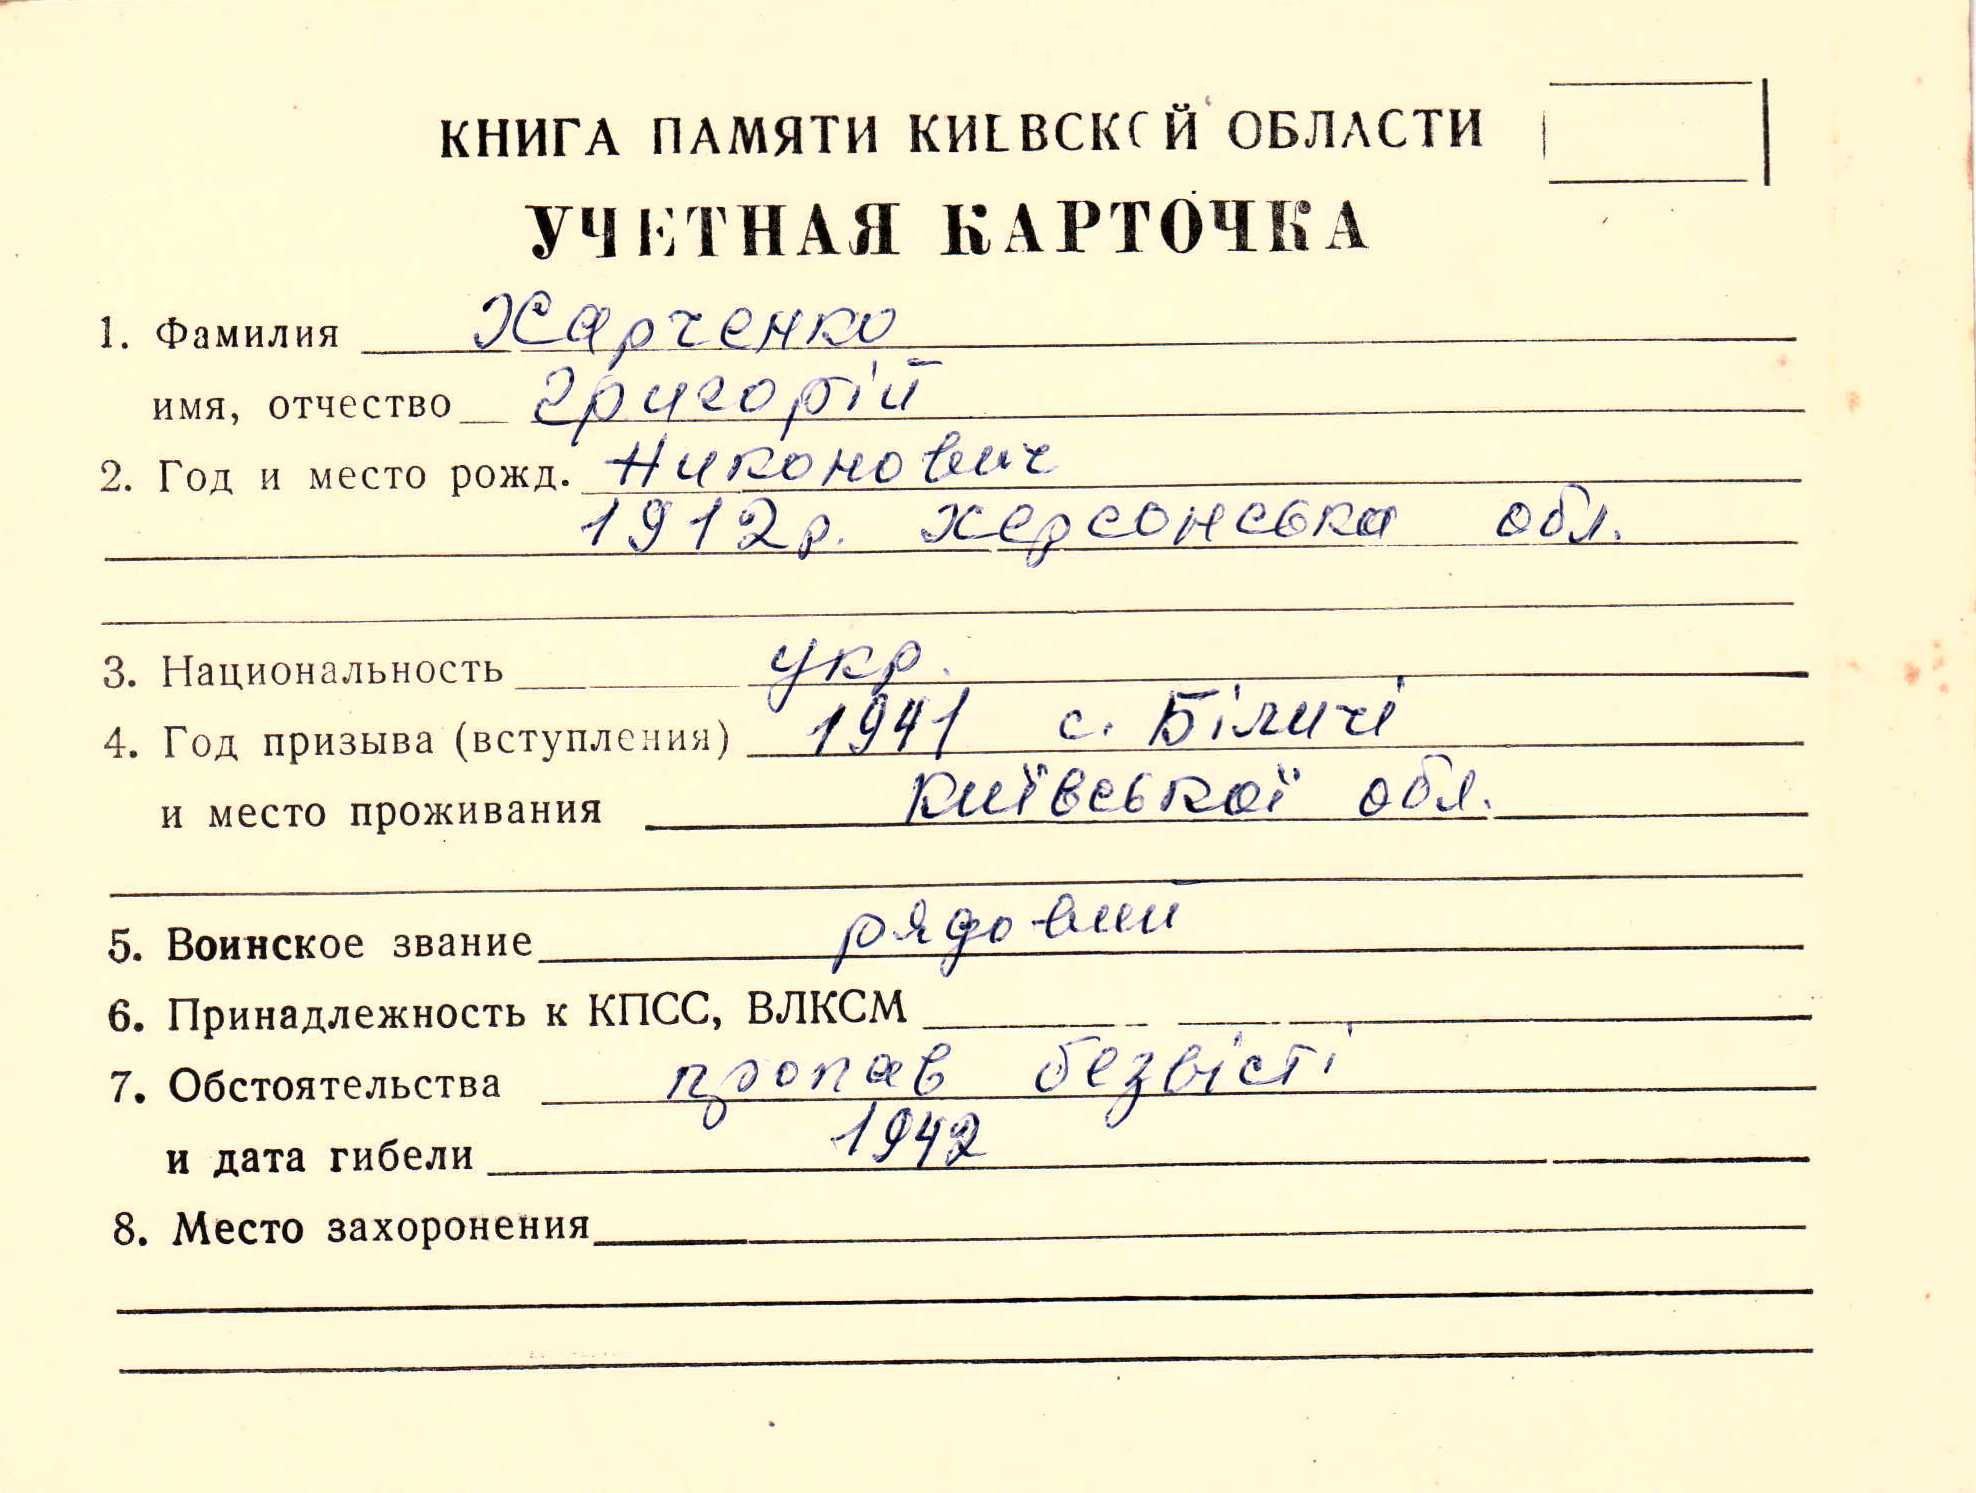 КНИГА ПАМЯТИ КИЕВСКОЙ ОБЛАСТИ
УЧЕТНАЯ КАРТОЧКА
1. Фамилия Харченко
имя, отчество Григорій
2. Год и место рожд. Никонович
1912р. Херсонська обл.
3. Национальность укр.
4. Год призыва (вступления) 1941 с. Біличі
и место проживания Київської обл.
5. Воинское звание рядовий
6. Принадлежность к КПСС, ВЛКСМ
7. Обстоятельства пропав безвісті
и дата гибели 1942
8. Место захоронения